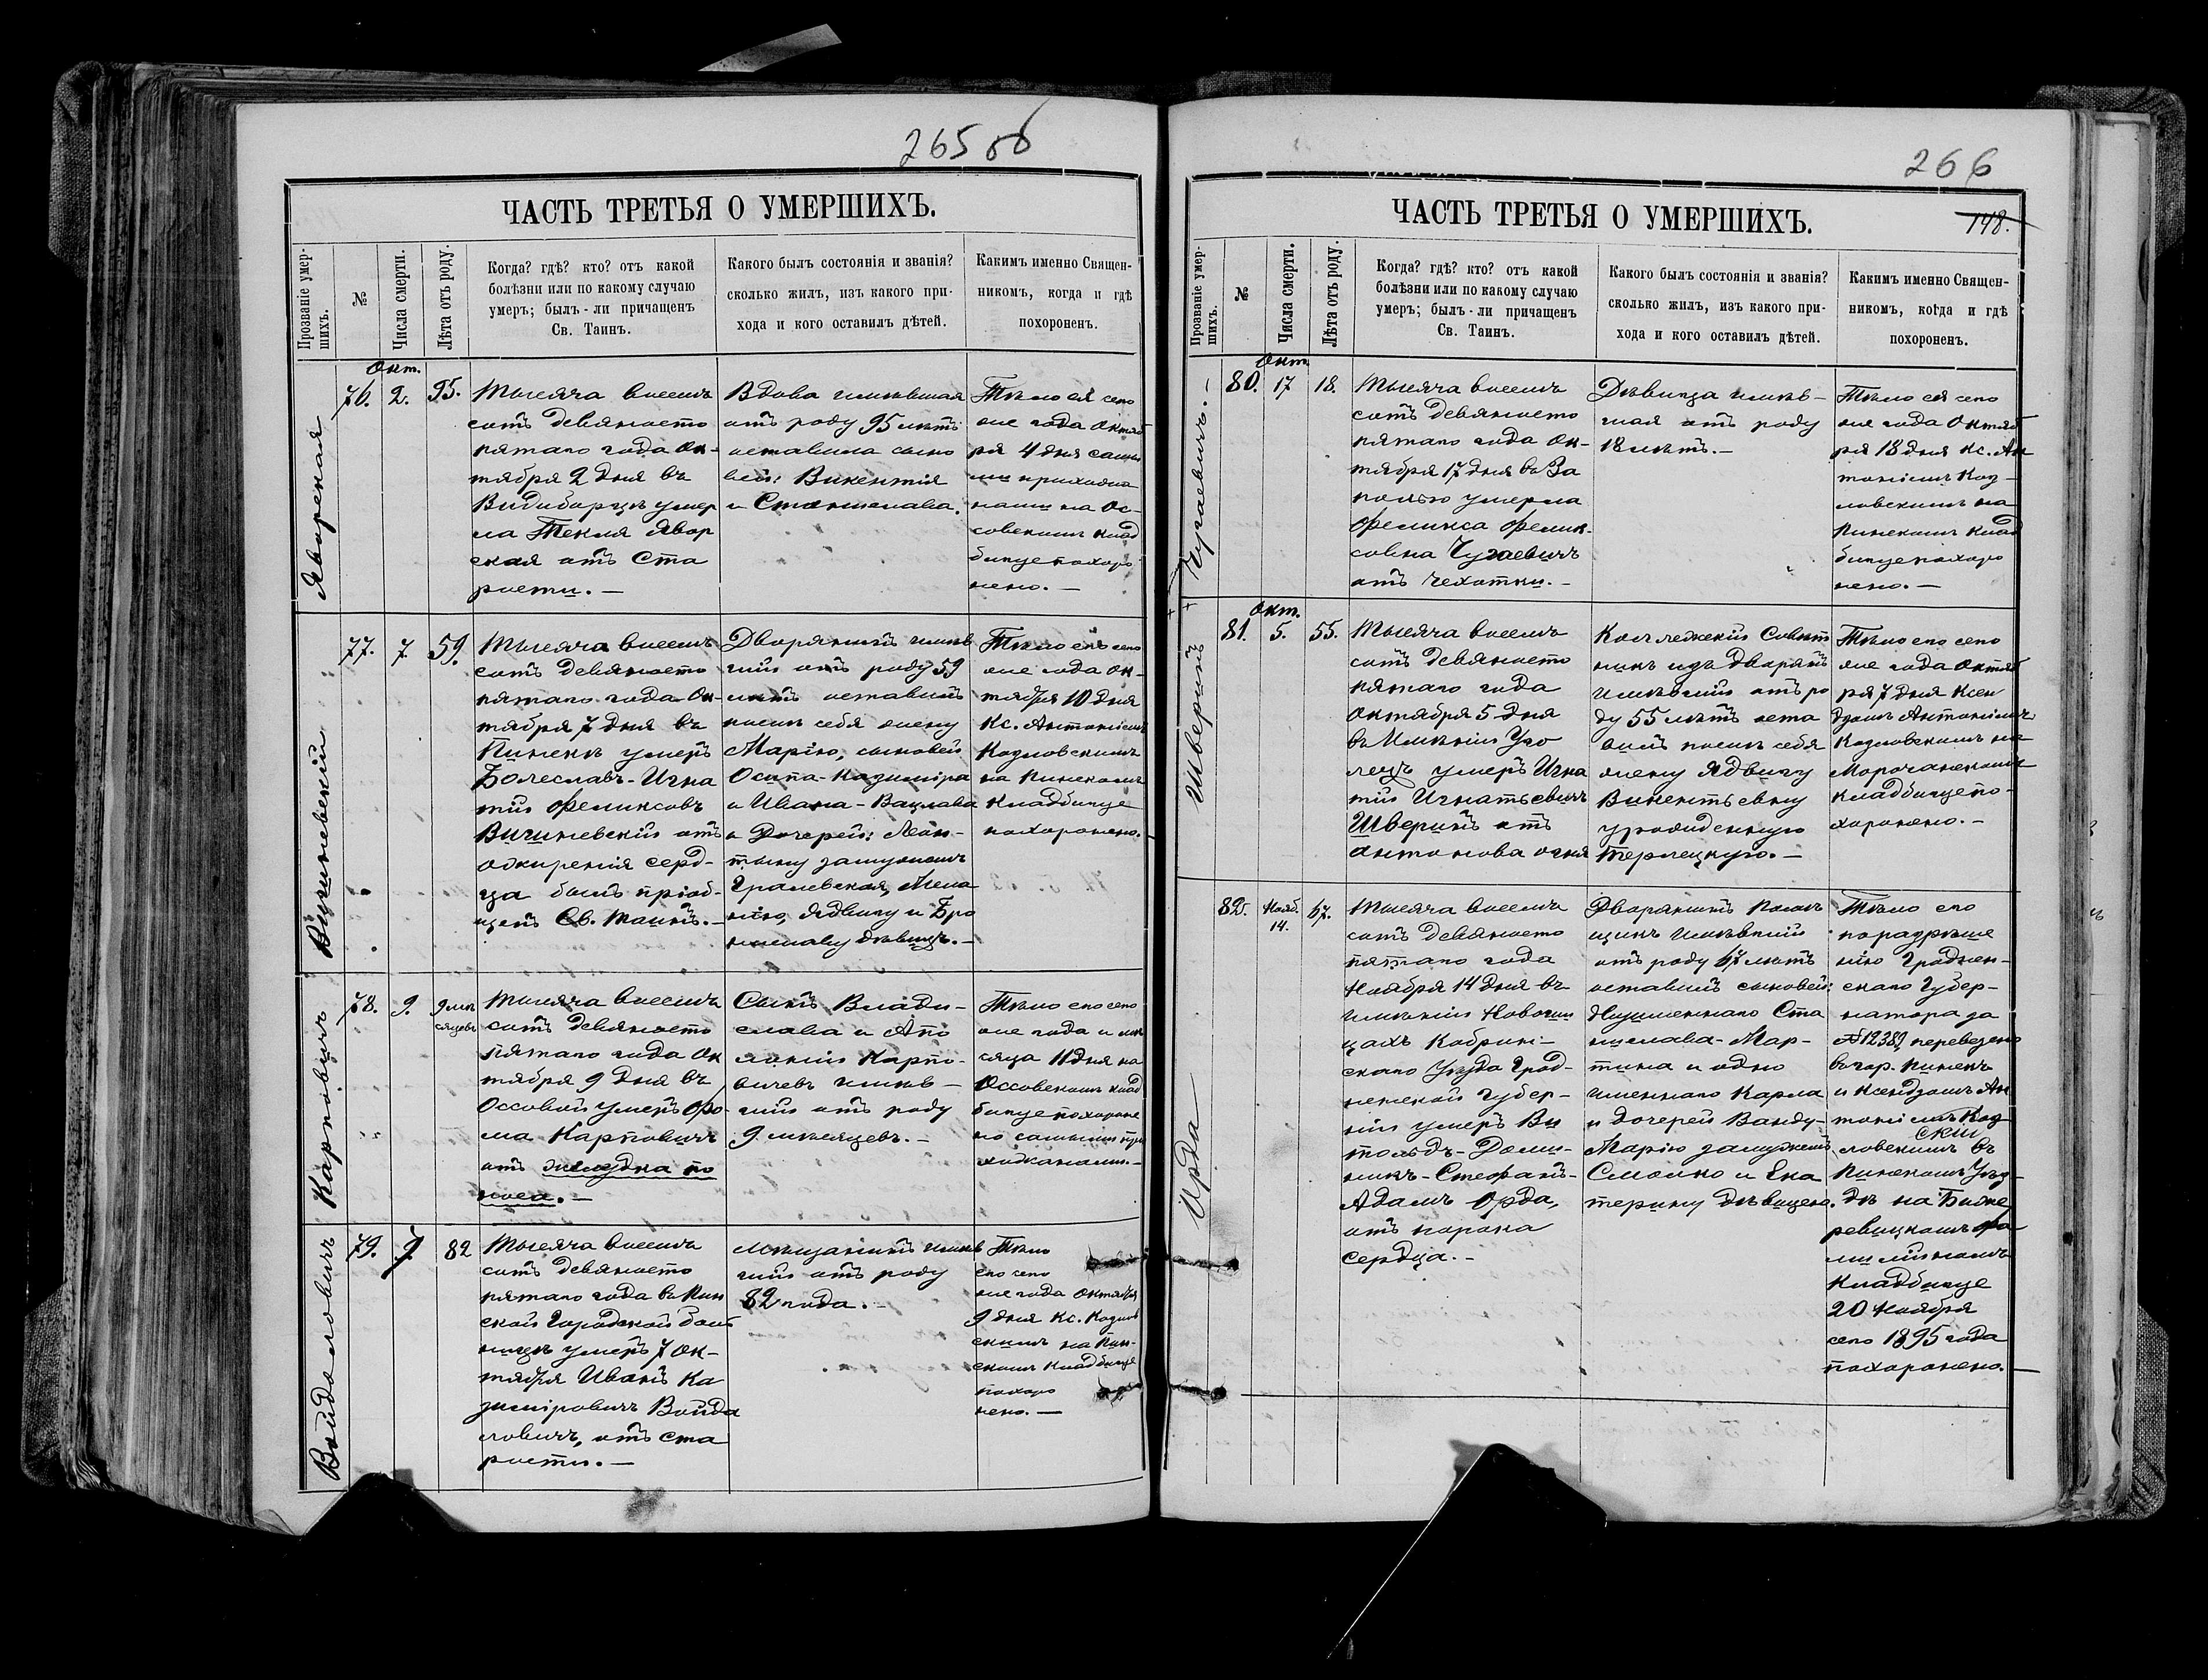 265 об
ЧАСТЬ ТРЕТЬЯ О УМЕРШИХЪ.
Прозваніе умер-
шихъ.
№
Числа смерти.
Лѣта отъ роду.
Когда? гдѣ? кто? отъ какой
болѣзни или по какому случаю
умеръ; былъ-ли причащенъ
Св. Таинъ.
Какого былъ состоянія и званія?
сколько жилъ, изъ какого при-
хода и кого оставилъ дѣтей.
Какимъ именно Священ-
никомъ, когда и гдѣ
похороненъ.
Яворская
76.
Окт.
2.
95.
Тысяча восемь
сотъ девяносто
пятаго года Ок-
тября 2 дня въ
Видиборцѣ умер
ла Текля Явор
ская отъ Ста
рости. —
Вдова имѣвшая
отъ роду 95 лѣтъ
оставила сыно
вей: Викентія
и Станислава.
Тѣло ея сего
же года Октяб
ря 4 дня самы
ми прихожа
нами на Ос-
совскомъ клад
бищѣ похоро
нено. —
Вигиневскій
77.
7
59.
Тысяча восемь
сотъ девяносто
пятаго года Ок-
тября 7 дня въ
Пинскѣ умеръ
Болеславъ-Игна
тій Феликсовъ
Вигиневскій отъ
ожиренія серд-
ца былъ пріоб-
щенъ Св. Таинъ. —
Дворянинъ имѣв
шій отъ роду 59
лѣтъ оставилъ
послѣ себя жену
Марію, сыновей
Осипа-Казиміра
и Ивана-Вацлава
и Дочерей: Леон-
тину замужемъ
Гралевская, Мела
нію, Ядвигу и Бро
ниславу дѣвицъ. —
Тѣло его сего
же года Ок-
тября 10 дня
Кс. Антоніемъ
Козловскимъ
на Пинскомъ
Кладбищѣ
похоронено. —
Карповичъ
78.
9.
9 мѣ
сяцевъ
Тысяча восемь
сотъ девяносто
пятаго года Ок
тября 9 дня въ
Оссовой умеръ Фо
ма Карповичъ
отъ желудка по
носа. —
Сынъ Влади-
слава и Апо
лоніи Карпо-
вичевъ имѣв-
шій отъ роду
9 мѣсяцевъ. —
Тѣло его сего
же года и мѣ
сяца 11 дня на
Оссовскомъ клад
бищѣ похороне
но самыми при
хожанами. —
Войдоловичъ
79.
7
82
Тысяча восемь
сотъ девяносто
пятаго года въ Пин
ской Городской бол
ницѣ умеръ 7 Ок-
тября Иванъ Ка
зиміровичъ Войда
ловичъ, отъ ста
рости. —
Мѣщанинъ имѣв
шій отъ роду
82 года. —
Тѣло
его сего
же года Октября
9 дня Кс. Козлов
скимъ на Пин-
скомъ Кладбищѣ
похоро
нено. —
266
148.
ЧАСТЬ ТРЕТЬЯ О УМЕРШИХЪ.
Прозваніе умер-
шихъ.
№
Числа смерти.
Лѣта отъ роду.
Когда? гдѣ? кто? отъ какой
болѣзни или по какому случаю
умеръ; былъ-ли причащенъ
Св. Таинъ.
Какого былъ состоянія и званія?
сколько жилъ, изъ какого при-
хода и кого оставилъ дѣтей.
Какимъ именно Священ-
никомъ, когда и гдѣ
похороненъ.
Чугаевичъ. —
80.
Окт.
17
18.
Тысяча восемь
сотъ девяносто
пятаго года Ок-
тября 17 дня въ За
полью умерла
Феликса Феликс
совна Чугаевичъ
отъ чехотки. —
Дѣвица имѣв-
шая отъ роду
18 лѣтъ. —
Тѣло ея сего
же года Октяб
ря 18 дня Кс. Ан
тоніемъ Коз-
ловскимъ на
Пинскомъ Клад
бищѣ похоро
нено. —
Шверинъ
81.
Окт.
5.
55.
Тысяча восемь
сотъ девяносто
пятаго года
Октября 5 дня
въ Имѣніи Уго
лецъ умеръ Игна
тій Игнатьевичъ
Шверинъ отъ
антонова огня
Коллежскій Совѣт
никъ изъ дворянъ
имѣвшій отъ ро
ду 55 лѣтъ оста
вилъ послѣ себя
жену Ядвигу
Викентьевну
урожденную
Терлецкую. —
Тѣло его сего
же года Октяб
ря 7 дня Ксен
дзомъ Антоніемъ
Козловскимъ на
Морочанскомъ
кладбищѣ по-
хоронено. —
Орда
82.
Нояб.
14.
67.
Тысяча восемь
сотъ девяносто
пятаго года
Ноября 14 дня въ
имѣніи Новоши
цахъ Кобрин-
скаго Уѣзда Грод-
ненской Губер-
ніи умеръ Ви
тольдъ-Доми-
никъ-Стефанъ-
Адамъ Орда,
отъ порока
сердца. —
Дворянинъ Помѣ
щикъ имѣвшій
отъ роду 67 лѣтъ
оставилъ сыновей:
Двуименнаго Ста
нислава-Мар-
тина и одно
именнаго Карла
и дочерей Ванду-
Марію замужемъ
Смолко и Ека
терину дѣвицею.
Тѣло его
по разрѣше
нію Гроднен-
скаго Губер-
натора за
№12389 перевезено
въ гор. Пинскъ
и Ксендзомъ Ан
тоніемъ Коз-
ским
ловскимъ въ
Пинскомъ Уѣз-
дѣ на Биже
ревицкомъ фа
милійномъ
Кладбищѣ
20 Ноября
сего 1895 года
похоронено. —